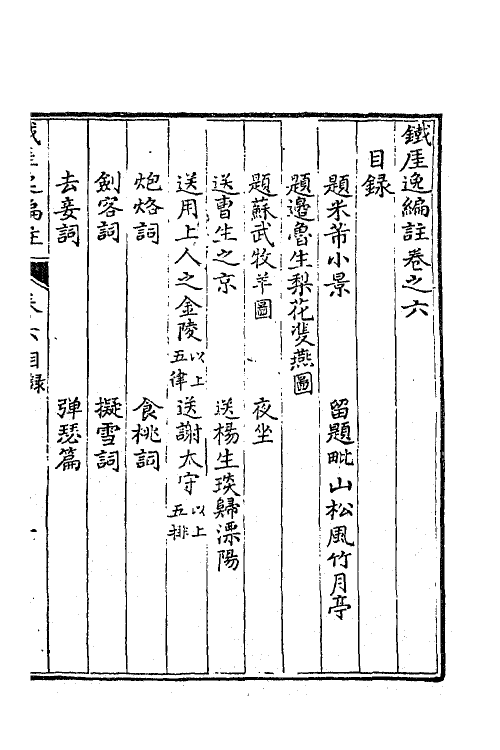 鐵厓逸編註卷之六
目錄
題米芾小景　留題毗山松風竹月亭
題邊魯生梨花雙燕圖
題蘇武牧羊圖　夜坐
送曹生之京　送楊生琰歸溧陽
送用上人之金陵以上五律　送謝太守以上五排
炮烙詞　食桃詞
劍客詞　擬雪詞
去妾詞　彈瑟篇
鐵厓逸編註　卷六目錄　一